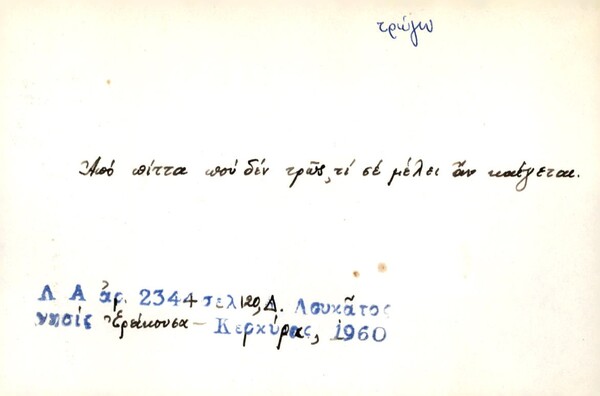 τρώγω
Ἀπό πίττα πού δέν τρῶς, τί σέ μέλει ἄν καίγεται.
Λ Α ἀρ. 2344 σελ 120, Δ. Λουκᾶτος
νησίς Ἐρείκουσα - Κερκύρας, 1960